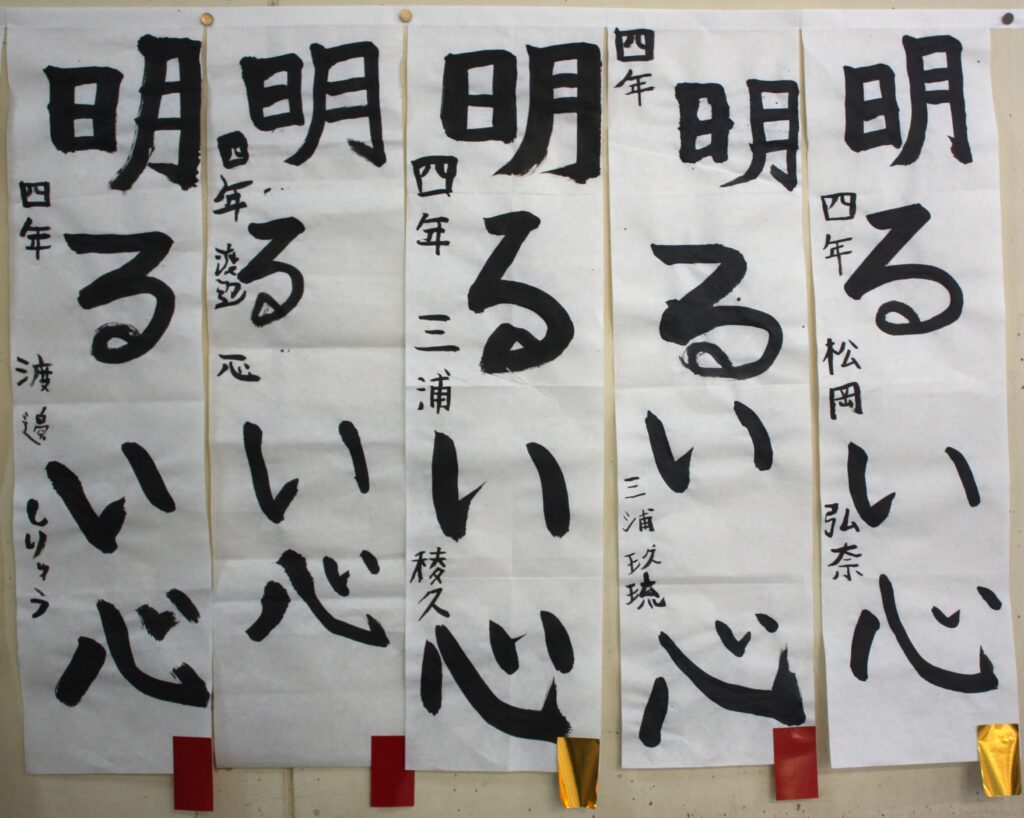 明るい心
四年 松岡 弘奈
明るい心
四年 三浦 玖琉
明るい心
四年 三浦 稜久
明るい心
四年 渡辺 心
明るい心
四年 渡邊 しりゅう